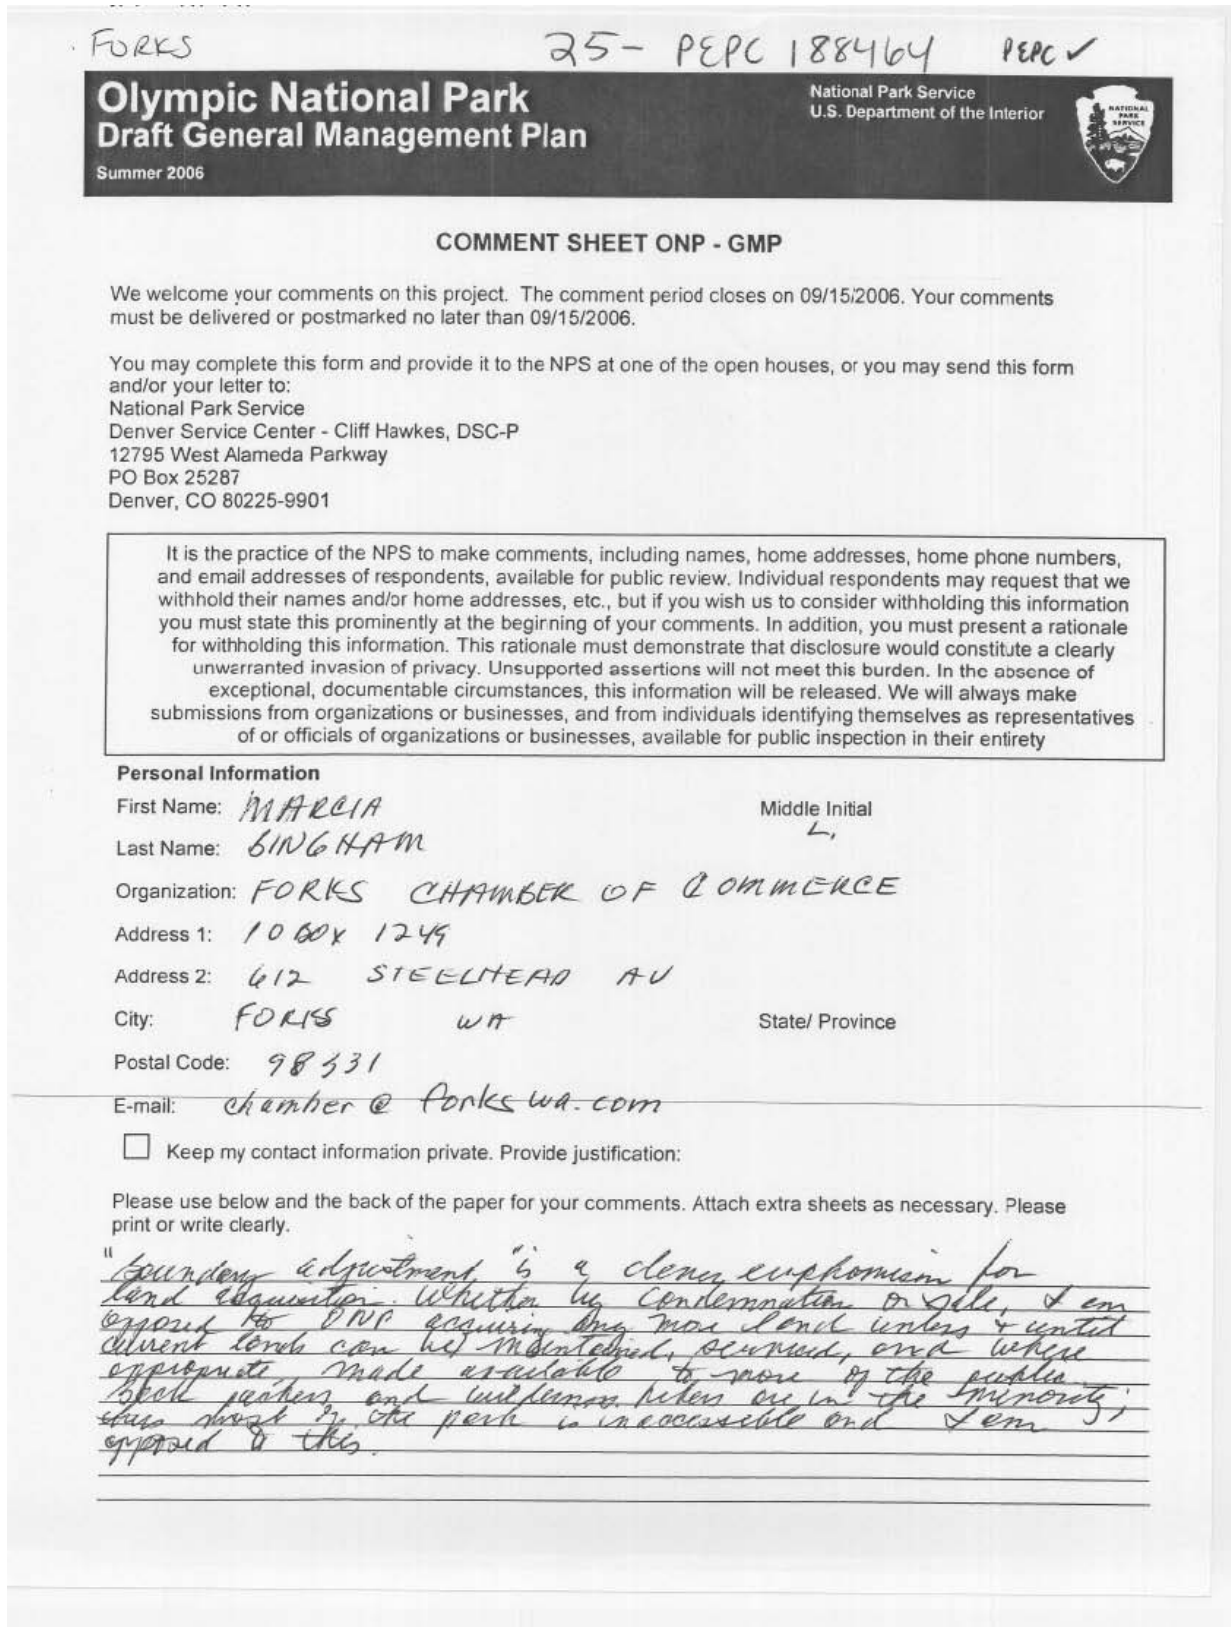 FORKS 25- PEPC 188464 PEPC ✓
Olympic National Park
Draft General Management Plan
Summer 2006
National Park Service
U.S. Department of the Interior
NATIONAL
PARK
SERVICE
COMMENT SHEET ONP - GMP
We welcome your comments on this project. The comment period closes on 09/15/2006. Your comments
must be delivered or postmarked no later than 09/15/2006.
You may complete this form and provide it to the NPS at one of the open houses, or you may send this form
and/or your letter to:
National Park Service
Denver Service Center - Cliff Hawkes, DSC-P
12795 West Alameda Parkway
PO Box 25287
Denver, CO 80225-9901
It is the practice of the NPS to make comments, including names, home addresses, home phone numbers,
and email addresses of respondents, available for public review. Individual respondents may request that we
withhold their names and/or home addresses, etc., but if you wish us to consider withholding this information
you must state this prominently at the beginning of your comments. In addition, you must present a rationale
for withholding this information. This rationale must demonstrate that disclosure would constitute a clearly
unwarranted invasion of privacy. Unsupported assertions will not meet this burden. In the absence of
exceptional, documentable circumstances, this information will be released. We will always make
submissions from organizations or businesses, and from individuals identifying themselves as representatives
of or officials of organizations or businesses, available for public inspection in their entirety
Personal Information
First Name: MARCIA Middle Initial
L.
Last Name: BINGHAM
Organization: FORKS CHAMBER OF COMMERCE
Address 1: PO BOX 1249
Address 2: 612 STEELHEAD AV
City: FORKS WA State/ Province
Postal Code: 98331
E-mail: chamber@forkswa.com
Keep my contact information private. Provide justification:
Please use below and the back of the paper for your comments. Attach extra sheets as necessary. Please
print or write clearly.
"Boundary adjustment" is a clever euphomism for
land acquisition. Whether by condemnation or sale, I am
opposed to ONP acquiring any more land unless & until
current lands can be maintained, serviced, and where
appropriate made available to more of the public.
Back packers and wilderness hikers are in the minority;
thus most of the park is inaccessible and I am
opposed to this.